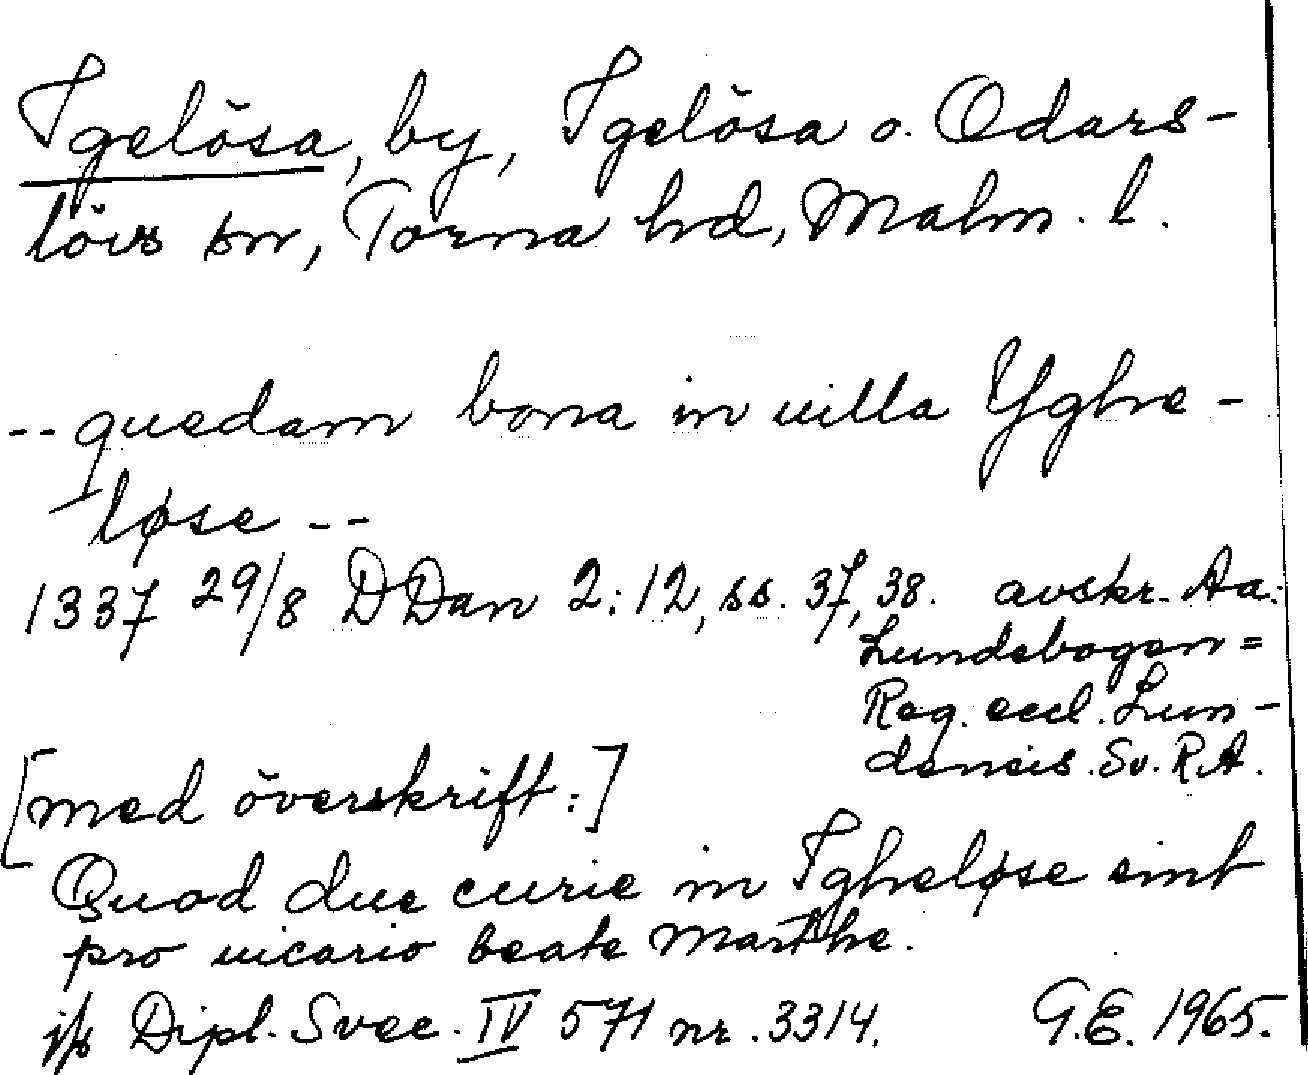 Igelösa, by, Igelösa o. Odars-
lövs sn, Torna hd, Malm. l.
-- quedam bona in uilla Yghe-
løse --
1337 29/8 DDan 2:12, ss. 37, 38. avskr. Aa:
Lundebogen =
Reg. eccl. Lun-
densis. Sv. R.A.
[med överskrift:]
Quod due curie in Igheløse sint
pro uicario beate Marthe.
jfs Dipl. Svec. IV 571 nr. 3314. G.E. 1965.